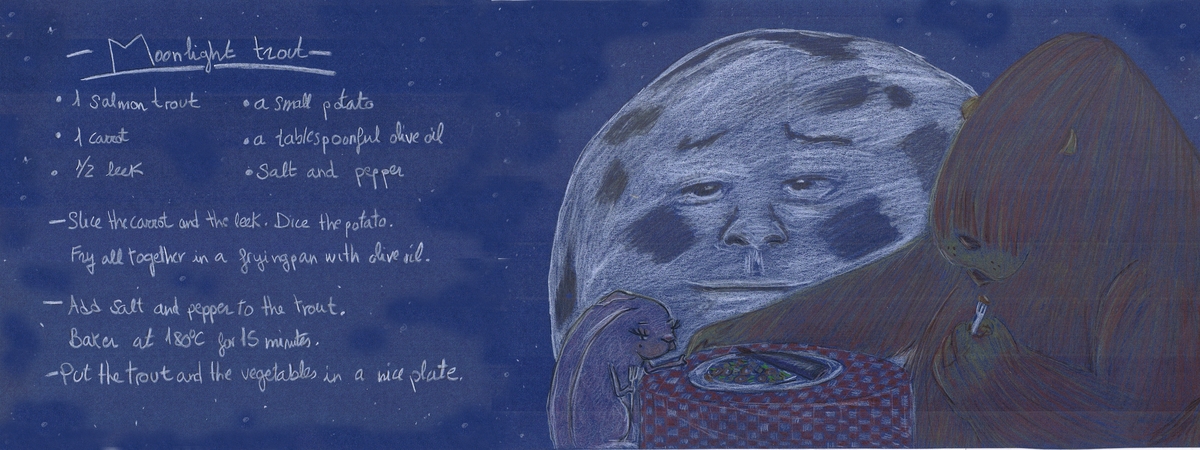 — Moonlight trout —
• 1 salmon trout
• 1 carrot
• 1/2 leek
• a small potato
• a tablespoonful olive oil
• Salt and pepper
— Slice the carrot and the leek. Dice the potato.
Fry all together in a frying pan with olive oil.
— Add salt and pepper to the trout.
Baken at 180°C for 15 minutes.
— Put the trout and the vegetables in a nice plate.